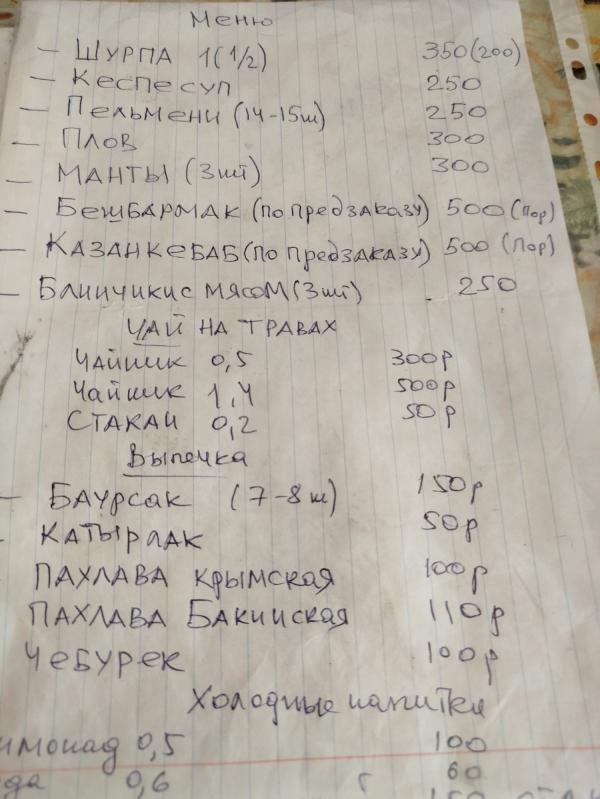 Меню
— ШУРПА 1(1/2) 350(200)
— Кеспе суп 250
— Пельмени (14-15ш) 250
— Плов 300
— МАНТЫ (3шт) 300
— Бешбармак (по предзаказу) 500 (пор)
— Казанкебаб (по предзаказу) 500 (пор)
— Блинчики с мясом (3шт) 250
ЧАЙ НА ТРАВАХ
Чайник 0,5 300р
Чайник 1,4 500р
Стакан 0,2 50р
Выпечка
— Баурсак (7-8ш) 150р
- Катырлак 50р
ПАХЛАВА крымская 100р
ПАХЛАВА Бакинская 110р
Чебурек 100р
Холодные напитки
имонад 0,5 100
да 0,6 60